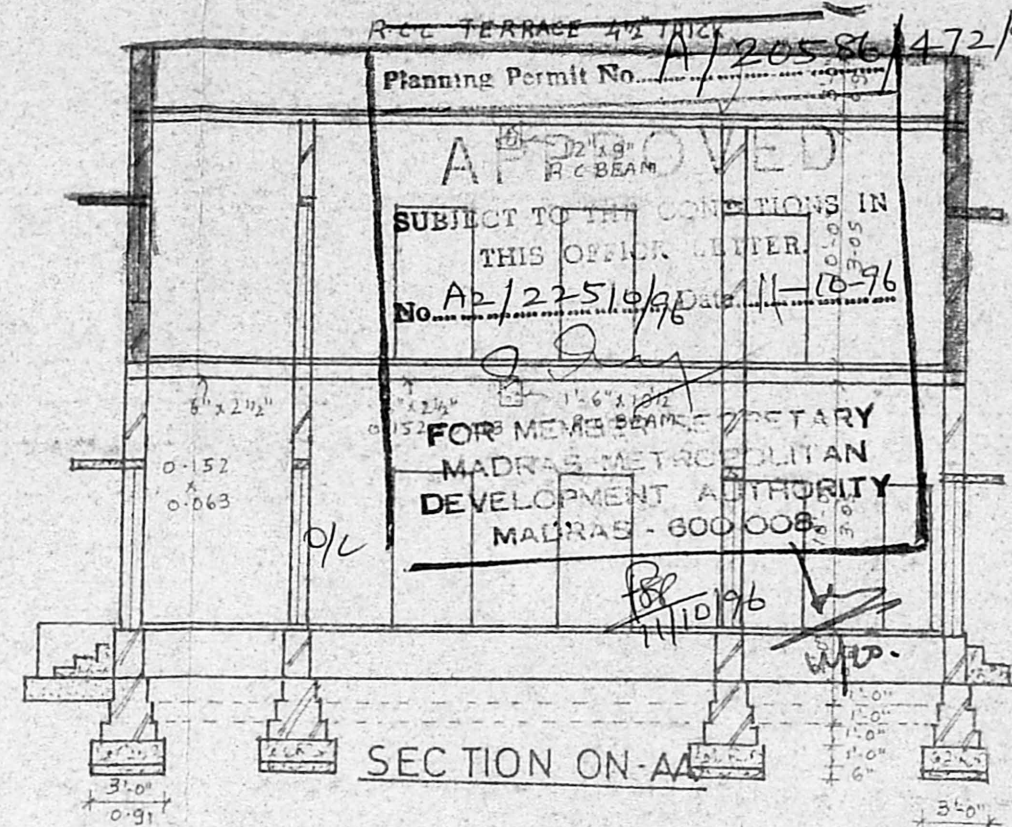 R.C.C TERRACE 4½" THICK
Planning Permit No. A/20586/472/9
APPROVED
12" x 9"
R C BEAM
SUBJECT TO THE CONDITIONS IN
THIS OFFICE LETTER.
10'-0"
3-05
No. A2/22510/96 Date 11-10-96
6" x 2½"
" x 2½"
1'-6" x 10½"
R.C. BEAM
0.152
x
0.063
0.152
FOR MEMBER SECRETARY
MADRAS METROPOLITAN
DEVELOPMENT AUTHORITY
MADRAS - 600 008
O/C
11/10/96
1'-0"
1'-0"
1'-0"
1'-0"
6"
SECTION ON-AA
3'-0"
0.91
3'-0"